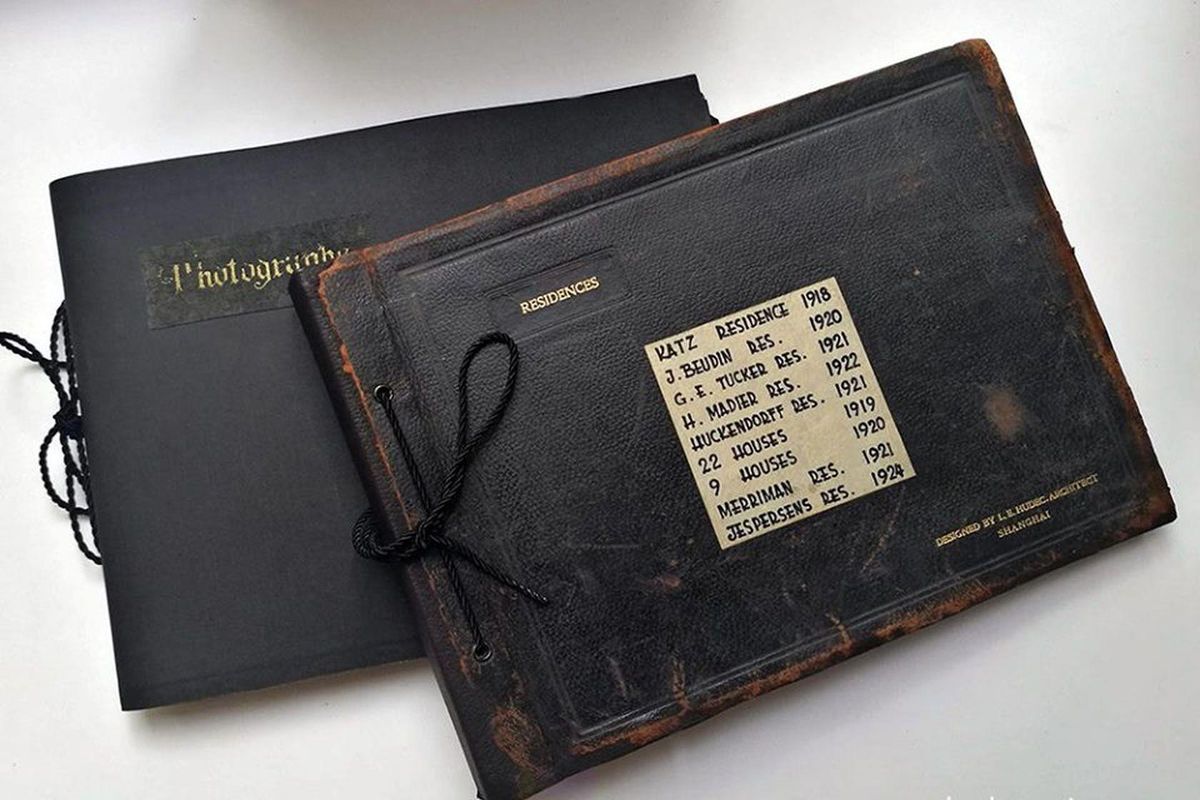 Photographs
RESIDENCES
KATZ RESIDENCE 1918
J. BEUDIN RES. 1920
G. E. TUCKER RES. 1921
H. MADIER RES. 1922
HUCKENDORFF RES. 1921
22 HOUSES 1919
9 HOUSES 1920
MERRIMAN RES. 1921
JESPERSENS RES. 1924
DESIGNED BY L. E. HUDEC. ARCHITECT
SHANGHAI